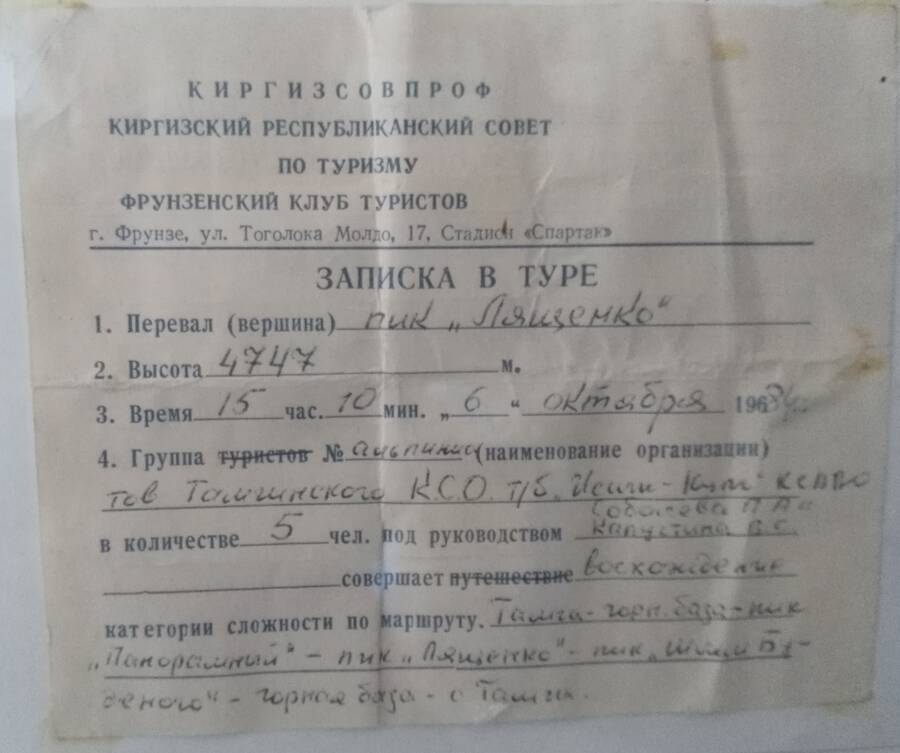 КИРГИЗСОВПРОФ
КИРГИЗСКИЙ РЕСПУБЛИКАНСКИЙ СОВЕТ
ПО ТУРИЗМУ
ФРУНЗЕНСКИЙ КЛУБ ТУРИСТОВ
г. Фрунзе, ул. Тоголока Молдо, 17, Стадион «Спартак»
ЗАПИСКА В ТУРЕ
1. Перевал (вершина) пик „Лященко"
2. Высота 4747 м.
3. Время 15 час. 10 мин. „6" октября 196
4. Группа туристов № альпинис (наименование организации)
тов Тамгинского К.С.О. т/б.
Соболева П.А.
в количестве 5 чел. под руководством Капустина В.С.
совершает путешествие восхождение
категории сложности по маршруту. Тамга - горн. база - пик
„Панорамный" - пик „Лященко" - пик
- горная база - с Тамга.